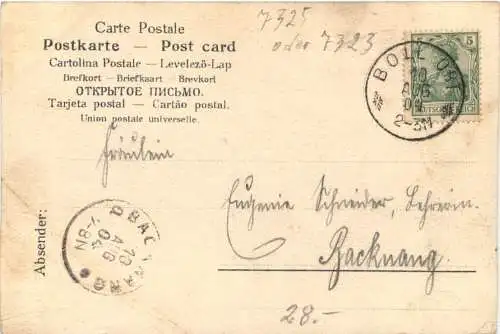 Carte Postale
Postkarte — Post card
Cartolina Postale — Levelező-Lap
Brefkort — Briefkaart — Brevkort
ОТКРЫТОЕ ПИСЬМО.
Tarjeta postal — Cartão postal.
Union postale universelle.
7325
oder 7323
BOLL
10
AUG
2-3N
5
Fräulein
Eugenie Schneider, Lehrerin.
Backnang.
Absender:
BACKNANG
10
AUG
04
7-8N
28.-